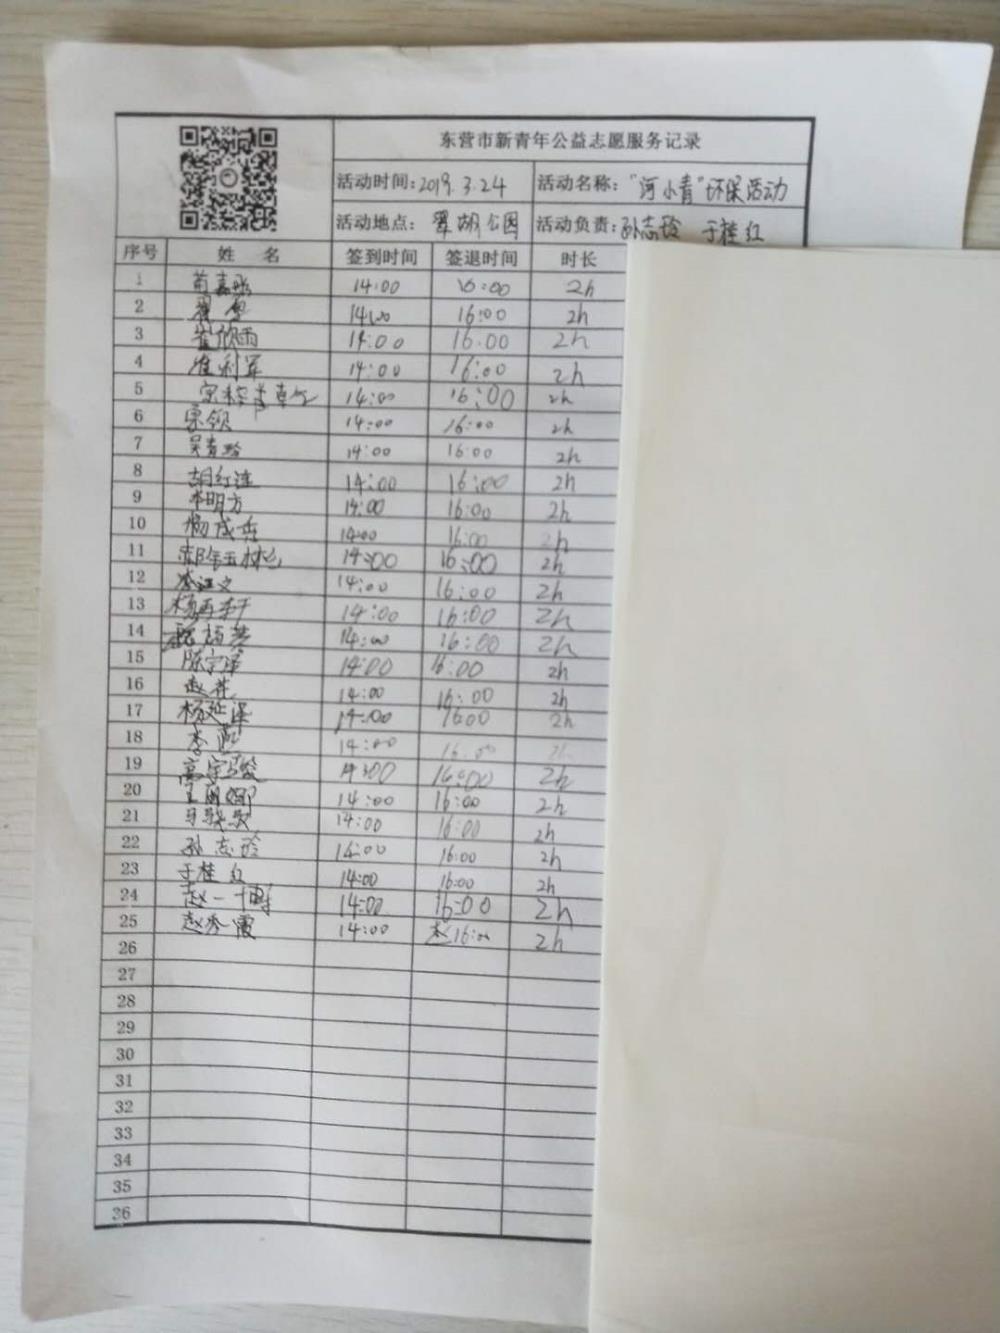 东营市新青年公益志愿服务记录
活动时间:2019.3.24 活动名称:"河小青"环保活动
活动地点: 翠湖公园 活动负责:孙志玲 于桂红
序号 姓 名 签到时间 签退时间 时长
1 14:00 16:00 2h
2 14:00 16:00 2h
3 崔欣雨 14:00 16:00 2h
4 崔利军 14:00 16:00 2h
5 14:00 16:00 2h
6 14:00 16:00 2h
7 14:00 16:00 2h
8 胡红莲 14:00 16:00 2h
9 李明方 14:00 16:00 2h
10 14:00 16:00 2h
11 14:00 16:00 2h
12 14:00 16:00 2h
13 杨再轩 14:00 16:00 2h
14 14:00 16:00 2h
15 陈宇泽 14:00 16:00 2h
16 14:00 16:00 2h
17 杨延泽 14:00 16:00 2h
18 李燕 14:00 16:00 2h
19 高宇骏 14:00 16:00 2h
20 王丽娜 14:00 16:00 2h
21 14:00 16:00 2h
22 孙志玲 14:00 16:00 2h
23 于桂红 14:00 16:00 2h
24 赵一博 14:00 16:00 2h
25 赵秀霞 14:00 16:00 2h
26
27
28
29
30
31
32
33
34
35
36